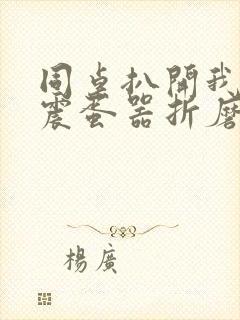 同桌扒開我
震蛋器折磨
楊廣